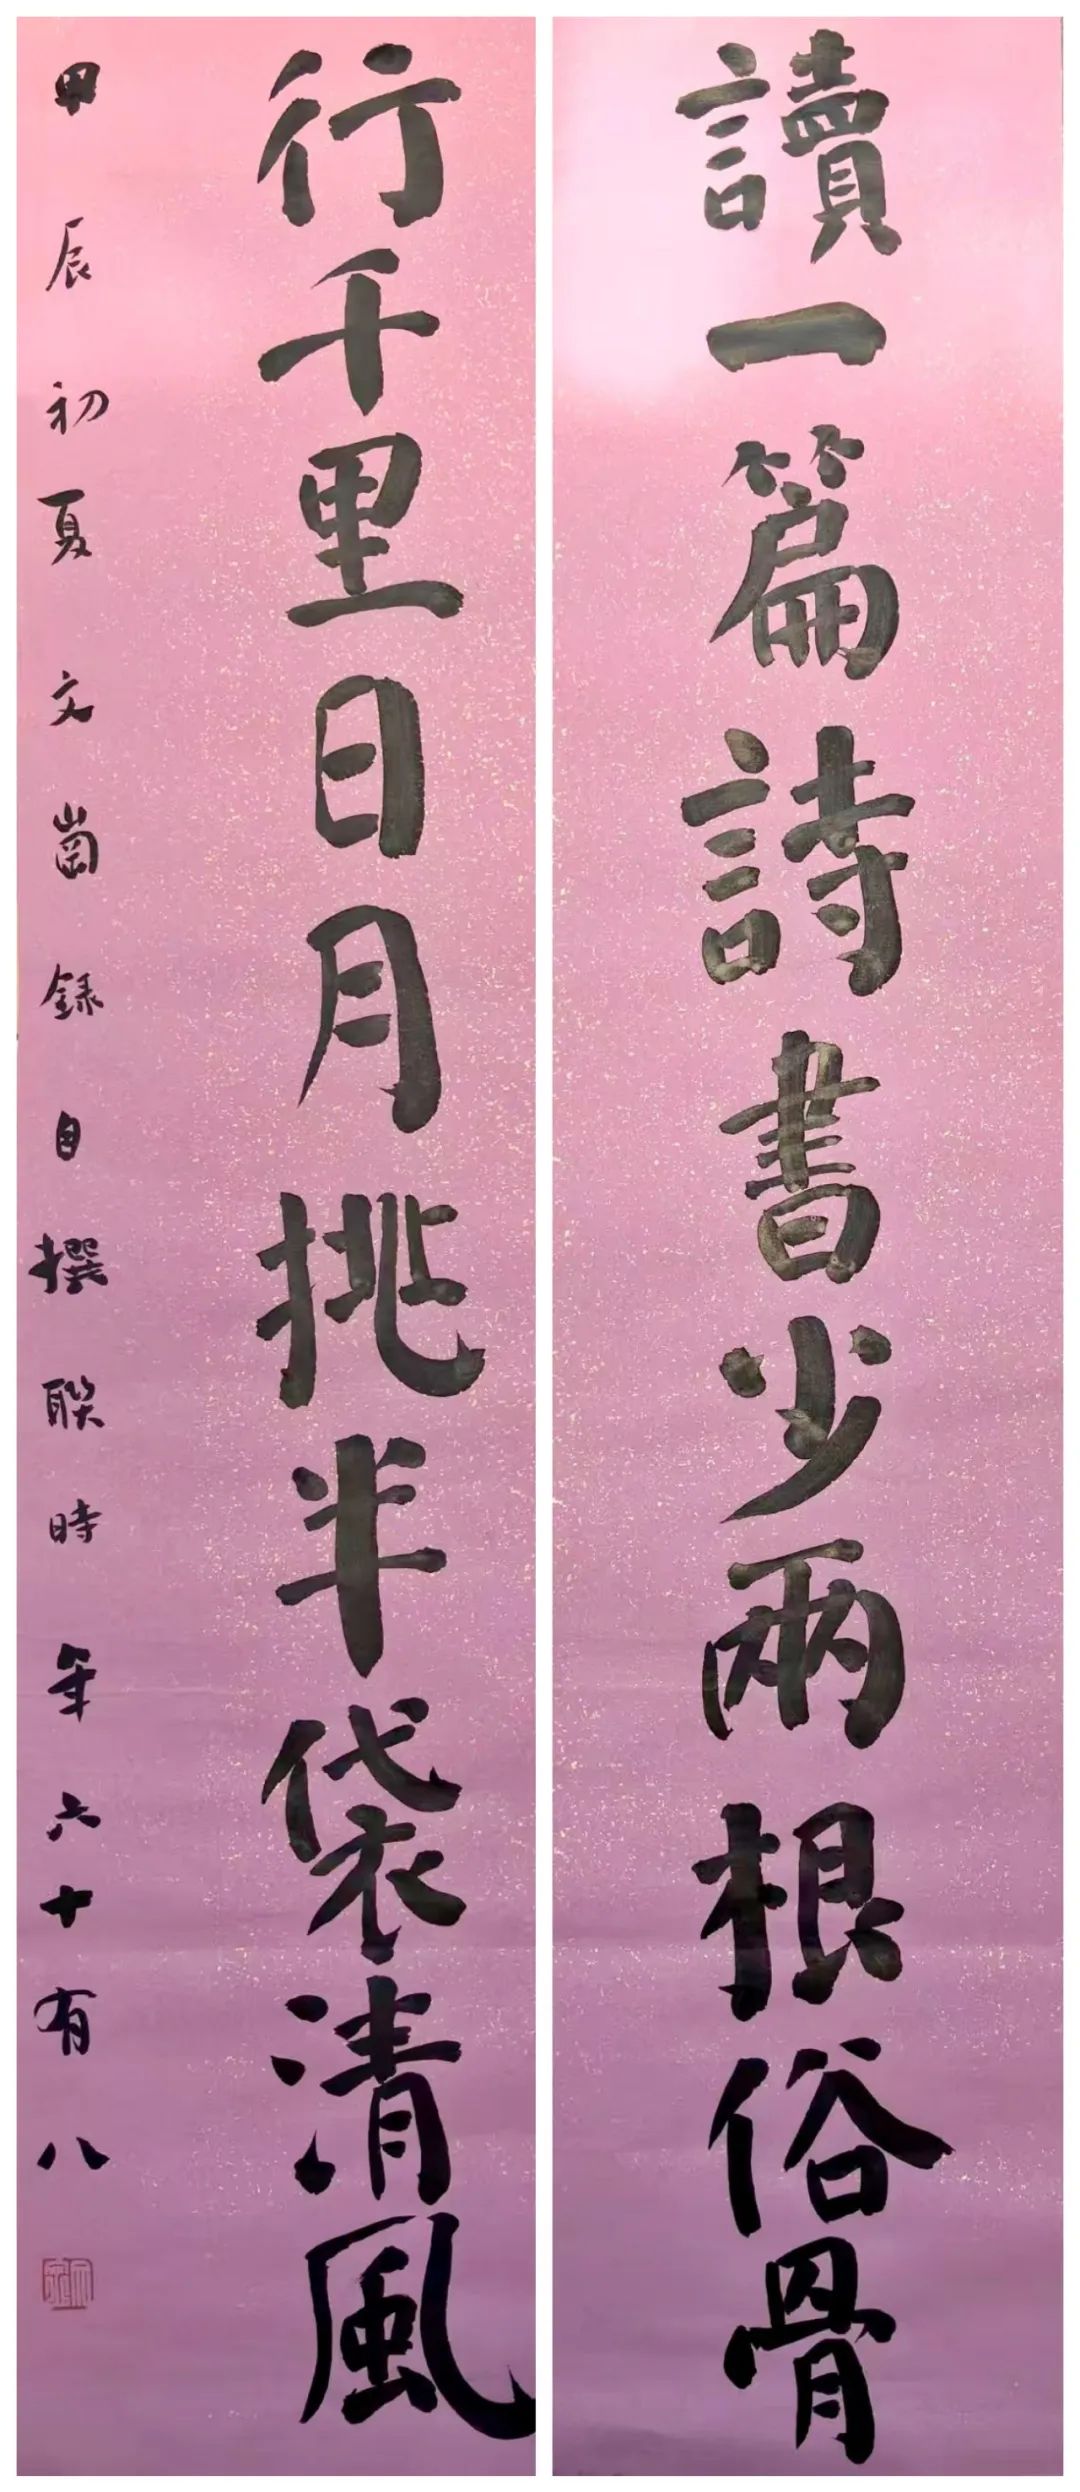 讀一篇詩書少兩根俗骨
行千里日月挑半袋清風
甲辰初夏文崗錄自撰聯時年六十有八